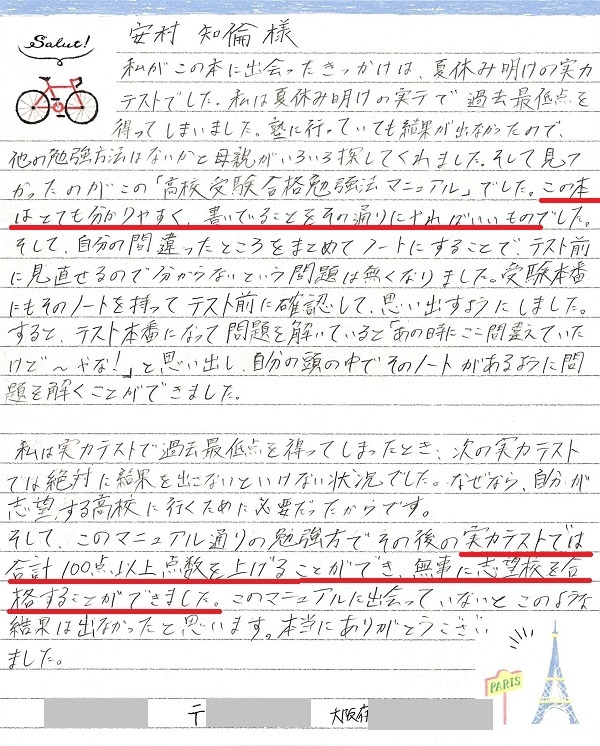 Salut!
安村 知倫 様
私がこの本に出会ったきっかけは、夏休み明けの実力
テストでした。私は夏休み明けの実テで過去最低点を
得ってしまいました。塾に行っていても結果が出なかったので、
他の勉強方法はないかと母親がいろいろ探してくれました。そして見つ
かったのがこの「高校受験合格勉強法マニュアル」でした。この本
はとても分かりやすく、書いてることをその通りにすればいいものでした。
そして、自分の間違ったところをまとめてノートにすることで、テスト前
に見直せるので分からないという問題は無くなりました。受験本番
にもそのノートを持ってテスト前に確認して、思い出すようにしました。
すると、テスト本番になって問題を解いていると「あの時にここ間違えていた
けど〜やな!」と思い出し、自分の頭の中でそのノートがあるように問
題を解くことができました。
私は実力テストで過去最低点を得ってしまったとき、次の実力テスト
では絶対に結果を出さないといけない状況でした。なぜなら、自分が
志望する高校に行くために必要だったからです。
そして、このマニュアル通りの勉強方でその後の実力テストでは
合計100点以上点数を上げることができ、無事に志望校を合
格することができました。このマニュアルに出会っていないとこのような
結果は出なかったと思います。本当にありがとうござい
ました。
PARIS
〒 大阪府